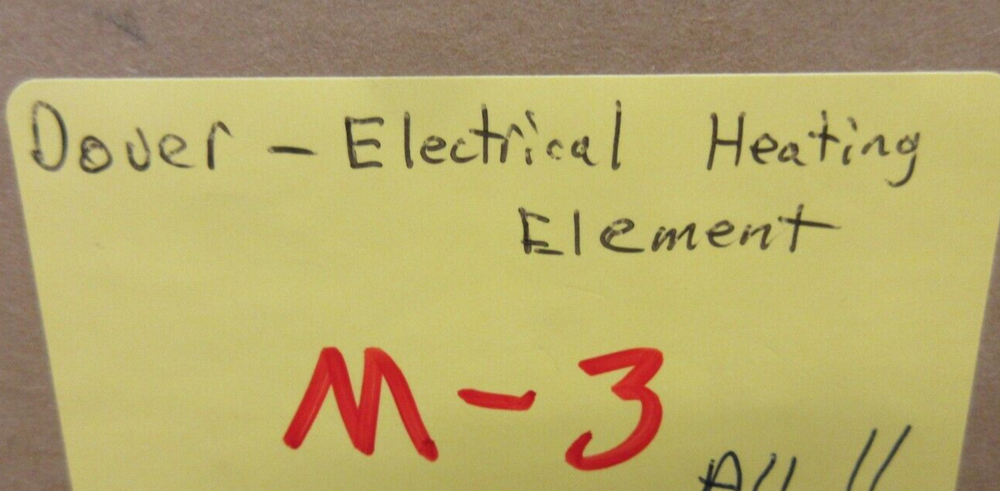 Dover - Electrical Heating
Element
M-3